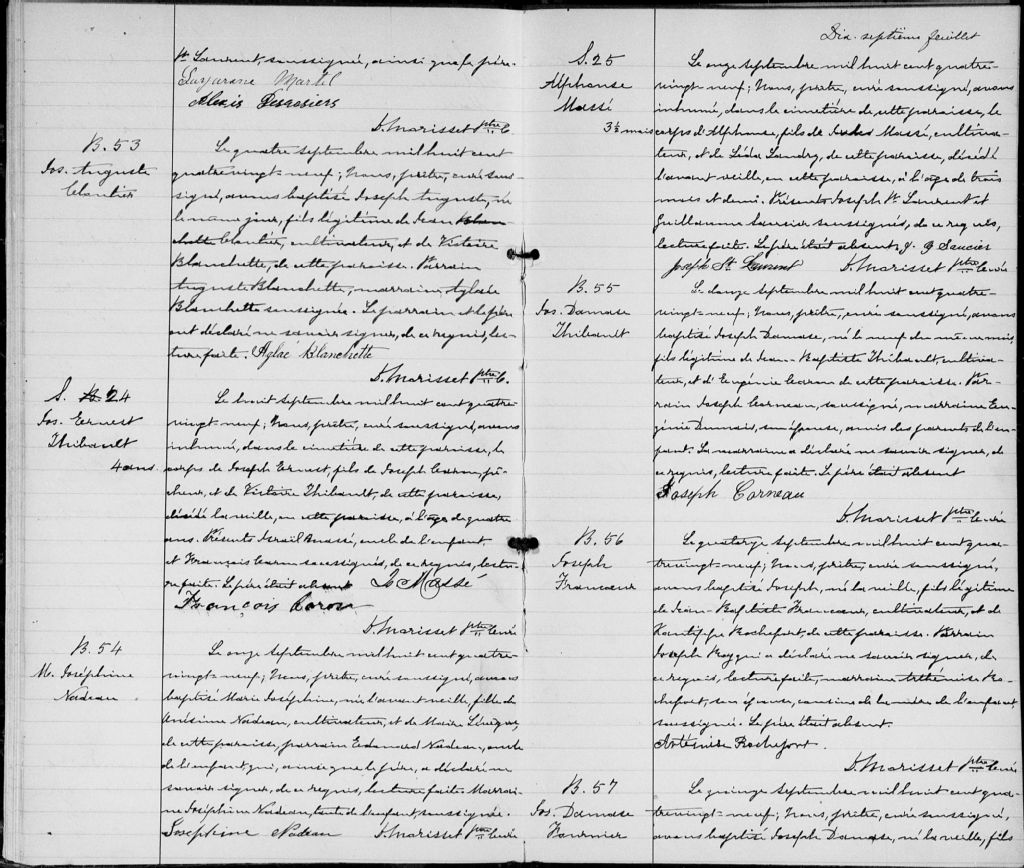 St Laurent, soussignée, ainsi que le père.
Martel
Alexis Desrosiers
D. Morisset Ptre C.
B. 53
Jos. Auguste
Cloutier
Le quatre septembre mil huit cent
quatre vingt-neuf; Nous, prêtre, curé sous-
signé, avons baptisé Joseph Auguste, né
le même jour, fils légitime de Jean Blan
chette Cloutier, cultivateur, et de Victoire
Blanchette, de cette paroisse. Parrain
Auguste Blanchette, marraine, Aglaé
Blanchette soussignée. Le parrain et le père
ont déclaré ne savoir signer, de ce requis, lec-
ture faite. Aglaé Blanchette
D. Morisset Ptre C.
S. B. 24
Jos. Ernest
Thibault
4 ans.
Le huit septembre mil huit cent quatre-
vingt-neuf; Nous, prêtre, curé soussigné, avons
inhumé, dans le cimetière de cette paroisse, le
corps de Joseph Ernest, fils de Joseph Caron, pê-
cheur, et de Victoire Thibault, de cette paroisse,
décédé la veille, en cette paroisse, à l'âge de quatre
ans. Présents Israël Massé, oncle de l'enfant,
et François Caron soussignés, de ce requis, lectu-
re faite. Le père était absent Massé
François Caron
D. Morisset Ptre Curé
B. 54
M. Joséphine
Nadeau
Le onze septembre mil huit cent quatre-
vingt-neuf; Nous, prêtre, curé soussigné, avons
baptisé Marie Joséphine, née l'avant veille, fille de
Onésime Nadeau, cultivateur, et de Marie Lévesque,
de cette paroisse, parrain Edouard Nadeau, oncle
de l'enfant, qui, ainsi que le père, a déclaré ne
savoir signer, de ce requis, lecture faite. Marrai-
ne Joséphine Nadeau, tante de l'enfant, soussignée.
Josephine Nadeau D. Morisset Ptre Curé
Dix-septième feuillet
S. 25
Alphonse
Massé
3½ mois
Le onze septembre mil huit cent quatre-
vingt-neuf; Nous, prêtre, curé soussigné, avons
inhumé, dans le cimetière de cette paroisse, le
corps d'Alphonse, fils de Massé, cultiva-
teur, et de Léda Landry, de cette paroisse, décédé
l'avant veille, en cette paroisse, à l'âge de trois
mois et demi. Présents Joseph St Laurent et
Guillaume Saucier soussignés, de ce requis,
lecture faite. Le père était absent, J. G Saucier
Joseph St Laurent D. Morisset Ptre Curé
B. 55
Jos. Damase
Thibault
Le douze septembre mil huit cent quatre-
vingt-neuf; Nous, prêtre, curé soussigné, avons
baptisé Joseph Damase, né le neuf du même mois,
fils légitime de Jean-Baptiste Thibault cultiva-
teur, et d'Eugénie Caron de cette paroisse. Par-
rain Joseph Corneau, soussigné, marraine Eu-
génie Dumais, son épouse, amis des parents de l'en-
fant. La marraine a déclaré ne savoir signer, de
ce requis, lecture faite. Le père était absent
Joseph Corneau
D. Morisset Ptre Curé
B. 56
Joseph
Francoeur
Le quatorze septembre mil huit cent qua-
tre vingt-neuf; Nous, prêtre, curé soussigné,
avons baptisé Joseph, né la veille, fils légitime
de Jean-Baptiste Francoeur, cultivateur, et de
Rochefort, de cette paroisse. Parrain
Joseph a déclaré ne savoir signer, de
ce requis, lecture faite, marraine Arthémise Ro-
chefort, son épouse, cousins de la mère de l'enfant,
soussignée. Le père était absent.
Artémise Rochefort.
D. Morisset Ptre Curé
B. 57
Jos. Damase
Fournier
Le quinze septembre mil huit cent qua-
tre vingt-neuf; Nous, prêtre, curé soussigné,
avons baptisé Joseph Damase, né la veille, fils